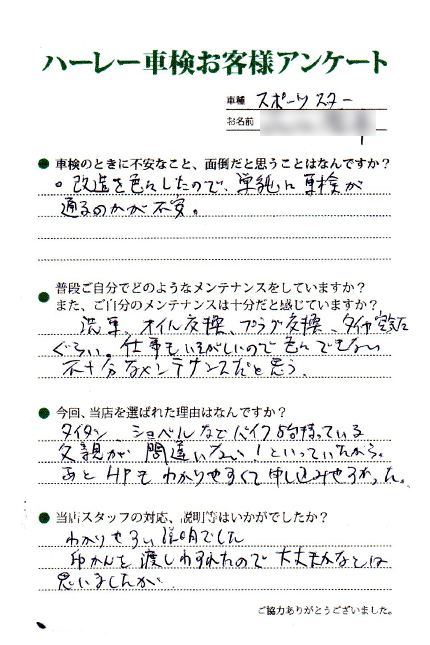 ハーレー車検お客様アンケート
車種 スポーツスター
お名前
● 車検のときに不安なこと、面倒だと思うことはなんですか?
○ 改造を色々したので、単純に車検が
通るのかが不安。
● 普段ご自分でどのようなメンテナンスをしていますか?
また、ご自分のメンテナンスは十分だと感じていますか?
洗車、オイル交換、プラグ交換、タイヤ
ぐらい。仕事もいそがしいので色々できない
不十分なメンテナンスだと思う。
● 今回、当店を選ばれた理由はなんですか?
タイタン、ショベルなどバイク5台持っている
父親が間違いない!といっていたから。
あとHPもわかりやすくて申し込みやすかった。
● 当店スタッフの対応、説明等はいかがでしたか?
わかりやすい説明でした
印かんを渡しわすれたので大丈夫かなとは
思いましたが
ご協力ありがとうございました。